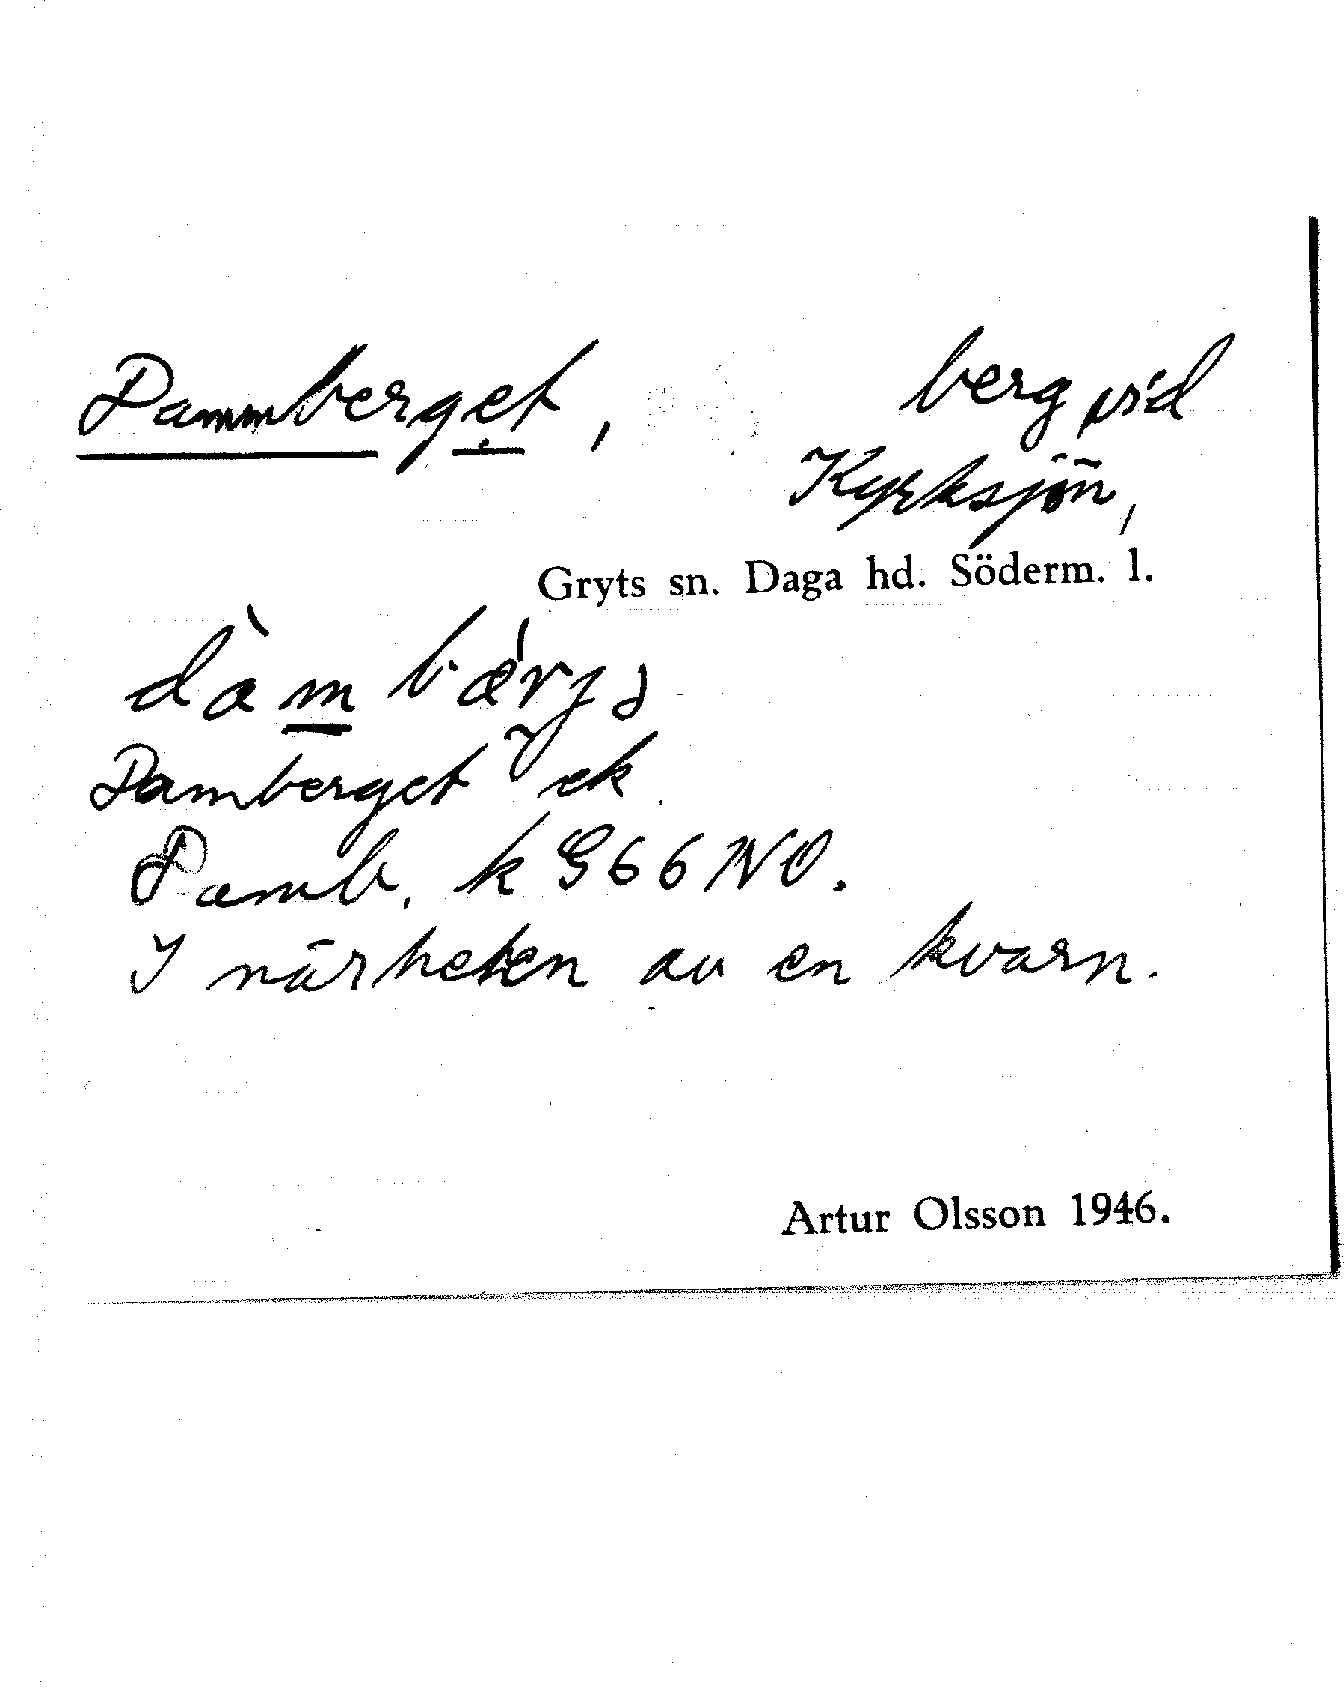 Dammberget, berg vid
Kyrksjön,
Gryts sn. Daga hd. Söderm. l.
dàm bærjə
Damberget ek
Damb. k G66 NO.
I närheten av en kvarn.
Artur Olsson 1946.